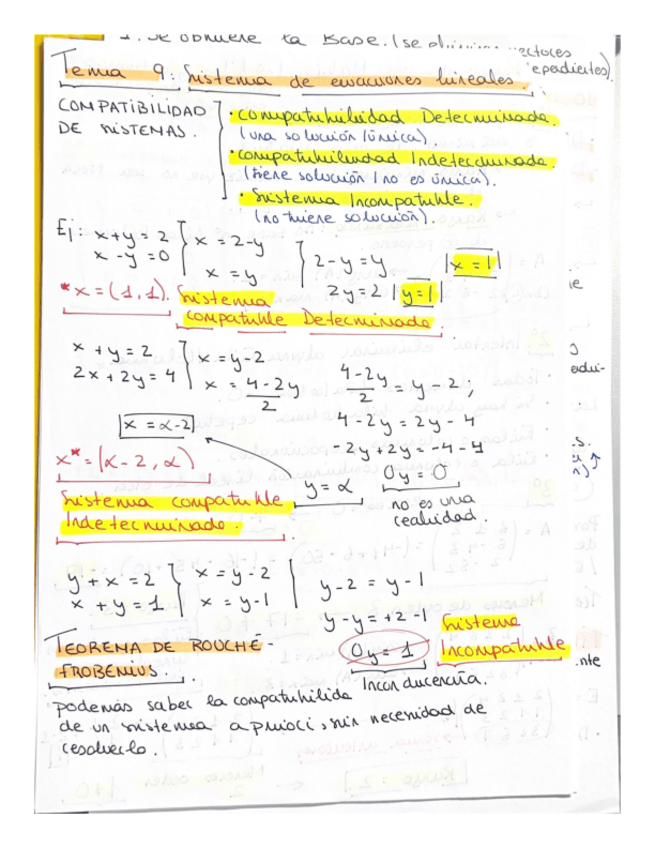 1. Se obtiene la Base. (se
Tema 9: Sistema de ecuaciones lineales.
COMPATIBILIDAD DE SISTEMAS.
· Compatibilidad Determinada.
(una solución/única).
· Compatibilidad Indeterminada.
(tiene solución/no es única).
· Sistema Incompatible.
(no tiene solución).
Ej: x+y=2 x=2-y 2-y=y x=1
x-y=0 x=y 2y=2 y=1
*x=(1,1). Sistema
compatible Determinado.
x+y=2 x=y-2 4-2y/2 = y-2,
2x+2y=4 x=4-2y/2 4-2y=2y-4
x=α-2 -2y+2y=-4-4
x*=(α-2, α) y=α 0y=0
Sistema compatible no es una
Indeterminado. realidad.
y+x=2 x=y-2 y-2=y-1
x+y=1 x=y-1 y-y=+2-1 Sistema
0y=1 Incompatible
TEOREMA DE ROUCHÉ-
FROBENIUS. Incongruencia.
podemas saber la compatibilida
de un sistema a priori sin necesidad de
resolverlo.